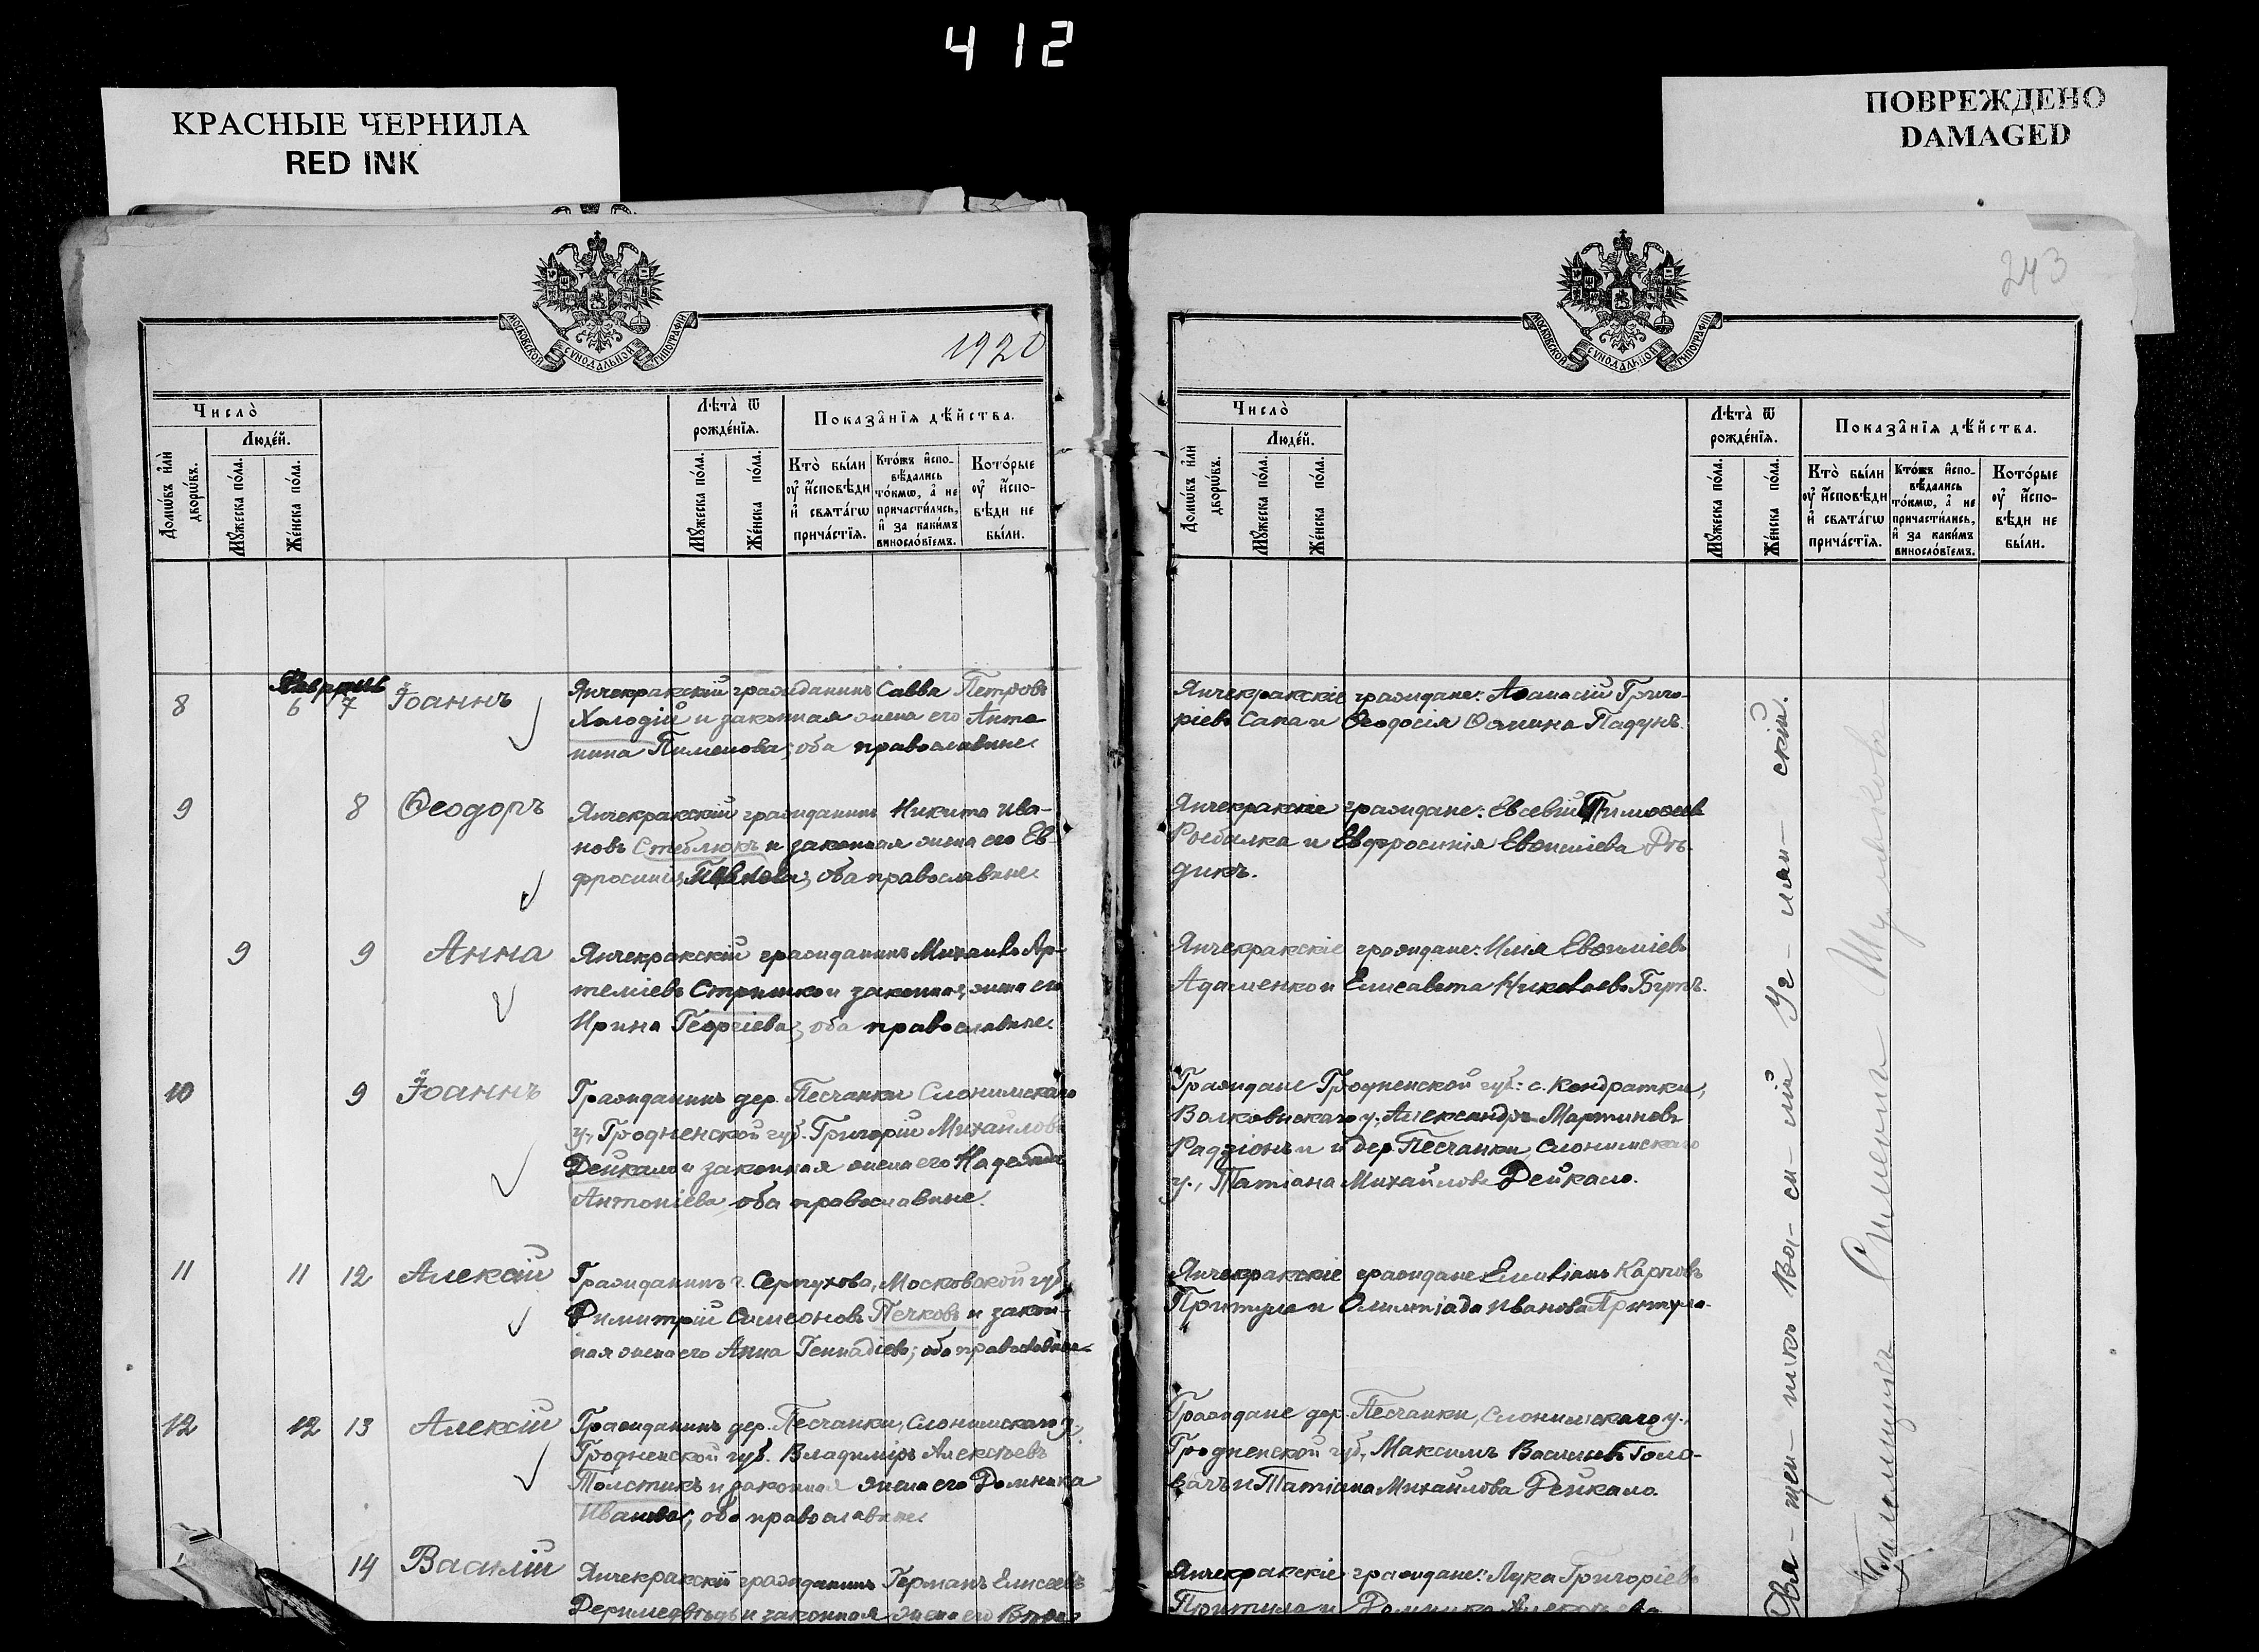 412
КРАСНЫЕ ЧЕРНИЛА
RED INK
ПОВРЕЖДЕНО
DAMAGED
243
МОСКОВСКОЙ СѴНОДАЛЬНОЙ ТИПОГРАФІИ
1920
Число̀
Людей.
Домѡвъ и҆лѝ дворѡвъ.
Мꙋжеска по́ла.
Же́нска по́ла.
Лѣта̀ ѿ рожде́нїѧ.
Мꙋжеска по́ла.
Же́нска по́ла.
Показа̑нїѧ дѣ́йства.
Кто̀ бы́ли оу҆ и҆́сповѣди и҆ свѧта́гѡ прича́стїѧ.
Кто́жъ и҆спо-вѣ́дались то́кмѡ, а҆ не причасти́лись, и҆ за каки́мъ виносло́вїемъ.
Кото́рые оу҆ и҆́спо-вѣди не бы́ли.
МОСКОВСКОЙ СѴНОДАЛЬНОЙ ТИПОГРАФІИ
Число̀
Людей.
Домѡвъ и҆лѝ дворѡвъ.
Мꙋжеска по́ла.
Же́нска по́ла.
Лѣта̀ ѿ рожде́нїѧ.
Мꙋжеска по́ла.
Же́нска по́ла.
Показа̑нїѧ дѣ́йства.
Кто̀ бы́ли оу҆ и҆́сповѣди и҆ свѧта́гѡ прича́стїѧ.
Кто́жъ и҆спо-вѣ́дались то́кмѡ, а҆ не причасти́лись, и҆ за каки́мъ виносло́вїемъ.
Кото́рые оу҆ и҆́спо-вѣди не бы́ли.
8 6 7 Іоаннъ
Янчекракскій гражданинъ Савва Петровъ
Холодій и законная жена его Анто
нина Пименова; оба православные
Янчекракскіе граждане: Аѳанасій Григо-
ріевъ Сапа и Ѳеодосія Ѳомина Падунъ.
9 8 Ѳеодоръ
Янчекракскій гражданинъ Никита Ива-
новъ Стеблюкъ и законная жена его Ев-
фросинія; оба православные
Янчекракскіе граждане: Евсевій Тимоѳеевъ
Рыбалка и Евфросинія Евѳиміева Рѣ-
дикъ.
9 9 Анна
Янчекракскій гражданинъ Михаилъ Ар-
теміевъ и законная жена его
Ирина Георгіева; оба православные
Янчекракскіе граждане: Илія Евѳиміевъ
Адаменко и Елисавета Николаева Бутъ.
10 9 Іоаннъ
Гражданинъ дер. Песчанки Слонимскаго
у., Гродненской губ. Григорій Михайловъ
Дейкало и законная жена его Надежда
Антоніева, оба православные.
Граждане Гродненской губ: с. Кондратки,
Волковискаго у. Александръ Мартиновъ
Радзіонъ и дер. Песчанки, Слонимскаго
у., Татіана Михайлова Дейкало.
11 11 12 Алексій
Гражданинъ г. Серпухова, Московской губ.
Димитрій Симеоновъ Печковъ и закон-
ная жена его Анна Геннадіева; оба православные
Янчекракскіе граждане Емиліанъ Карповъ
Притула и Олимпіада Иванова Притула.
12 12 13 Алексій
Гражданинъ дер. Песчанки, Слонимскаго у.,
Гродненской губ. Владиміръ Алексѣевъ
Толстикъ и законная жена его Домника
Иванова; оба православные
Граждане дер. Песчанки, Слонимскаго у.,
Гродненской губ., Максимъ Василіевъ Голо-
вачъ и Татіана Михайлова Дейкало.
14 Василій
Янчекракскій гражданинъ Германъ Елисеевъ
и законная жена его
Янчекракскіе граждане: Лука Григоріевъ
Притула и Домника
Свя-щен-никъ Ва-си-лій
Симеонъ